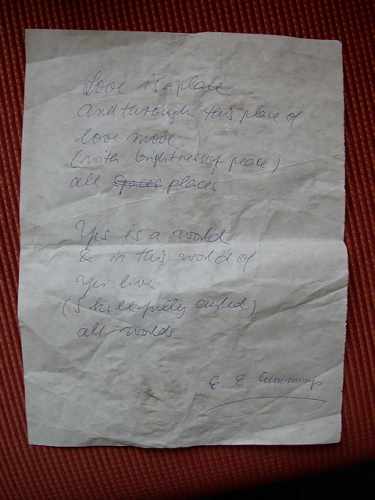 Love is a place
and through this place of
love move
(with brightness of peace)
all places
Yes is a world
& in this world of
yes live
(skilfully curled)
all worlds
E E Cummings